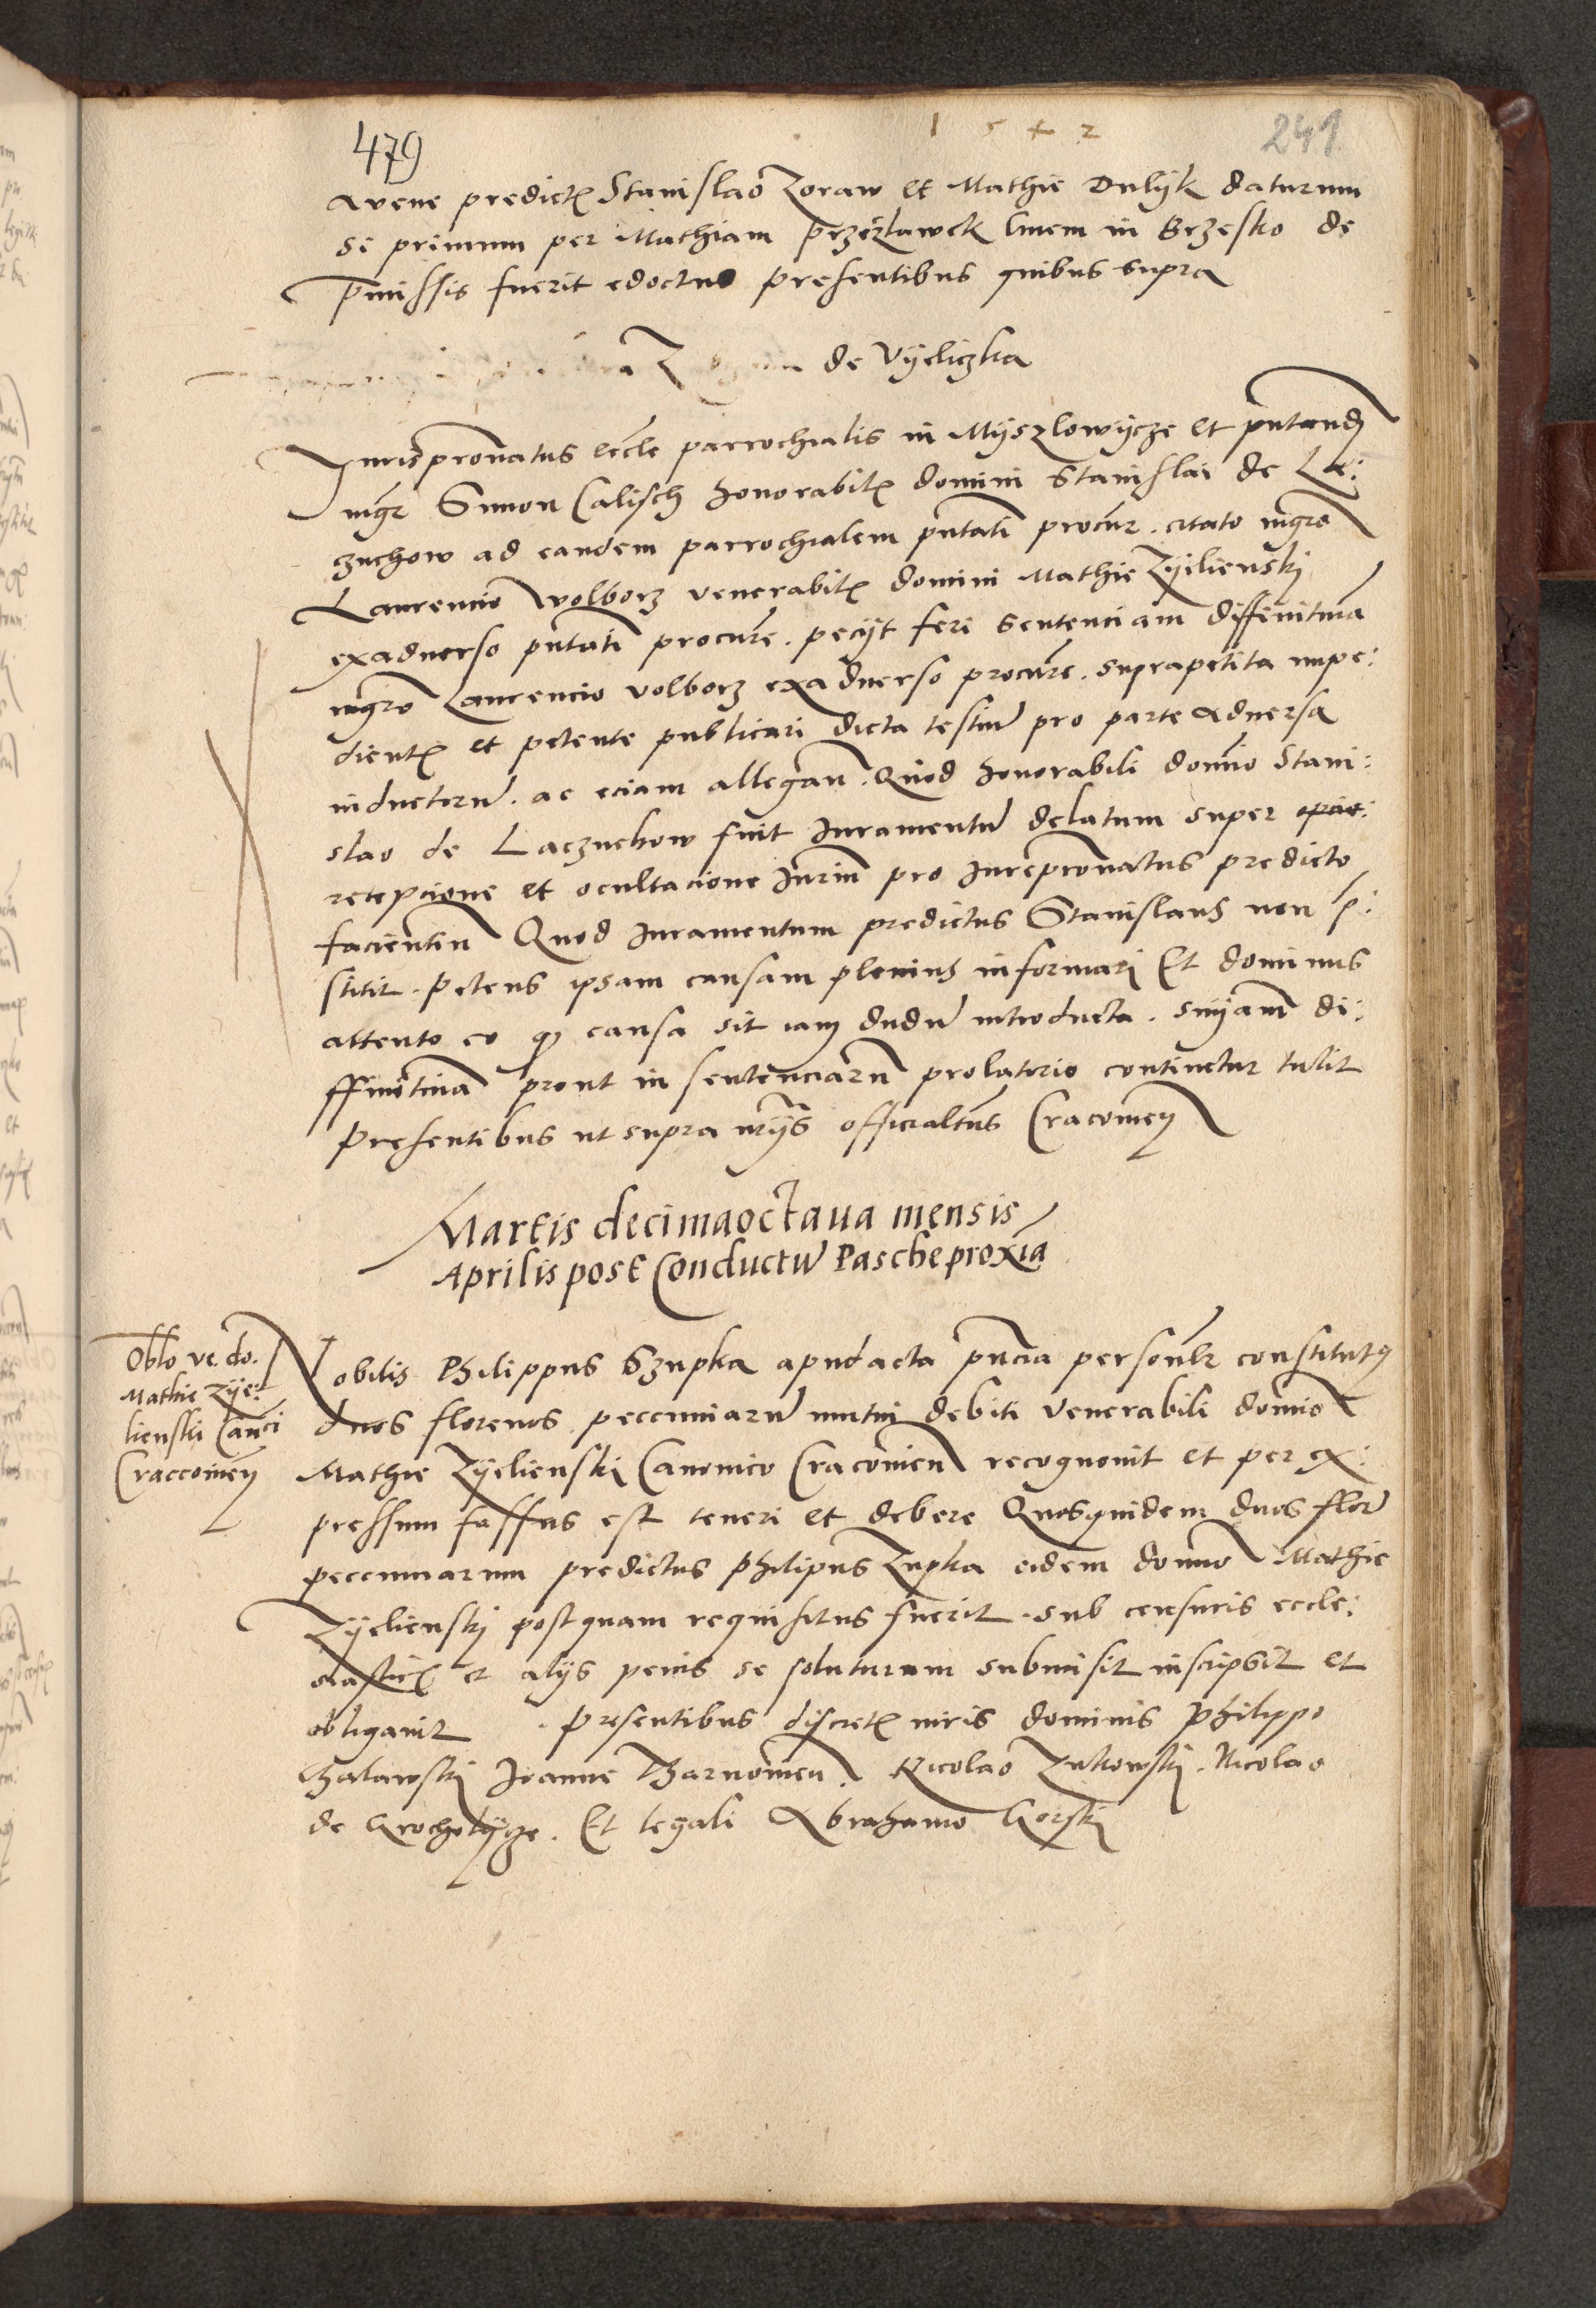 479
1542
241
avene predict[is] Stanislao Zoraw et Mathie Dulijk daturum
se primum per Mathiam Przezlawek Civem in Brzesko de
p̄missis fuerit edoctus presentibus quibus supra
de Vyeliczka
Jurispronatus eccle parrochialis in Myszlowycze et pn̄tandj
mgr Simon Calisch honorabil[is] domini Stanislai de La:
czuchow ad eandem parrochialem pn̄tati procur. citato mgro
Laurencio Wolborz venerabil[is] domini Mathie Zyelienskj
exadverso pn̄tati procure. pecijt feri sentenciam diffinitivā
mgro Laurencio Volborz exadverso procure. suprapetita impe:
dient[e] et petente publicari dicta testiū pro parte adversa
inductorū. ac eciam allegan. Quod honorabili dom̄io Stani:
slao de Laczuchow fuit Juramentū delatum super
recepcione et ocultacione Juriū pro Jurepronatus predicto
facientiū Quod Juramentum predictus Stanislaus non p̄:
stitit. Petens ipsam causam plenius informari Et dominus
attento eo q causa sit iam dudū introducta. sniam di:
ffinitivā prout in sentenciarū prolatorio continetur tulit
Presentibus ut supra nrijs officialtus Cracovien
Martis decimaoctava mensis
Aprilis post Conductū Pasche proxīa
Oblo ve. do.
Mathie Zye:
lienski Canci
Craccovien
Nobilis Philippus Szupka apud acta pn̄cia personlr constitutus
duos florenos pecuniarū mutui debiti Venerabili domino
Mathie Zyelienskj Canonico Cracovien recognovit et per ex:
pressum fassus est teneri et debere Quosquidem duos flor
pecuniarum predictus Philipus Zupka eidem domino Mathie
Zyelienskj postquam requisitus fuerit. sub censuris eccle:
siasticis et alijs penis se soluturum submisit inscripsit et
obligavit. Presentibus discretis viris dominis Philippo
Chalawskj Joanne Tharnovien. Nicolao Zukowskj. Nicolao
de Grocholycze. Et legali Abrahamo Gorskj